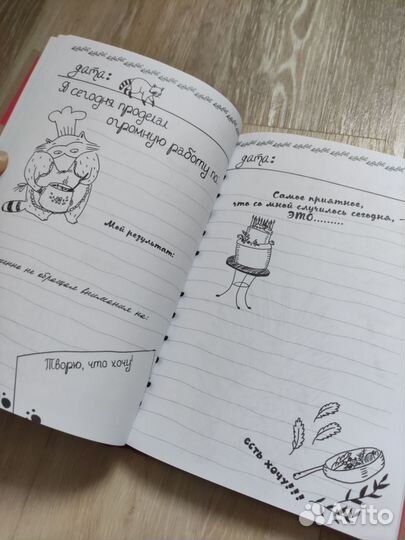 дата:
Я сегодня проделал
огромную работу по
Мой результат:
не обращал внимания на:
Творю, что хочу
дата:
Самое приятное,
что со мной случилось сегодня, -
ЭТО.........
есть хочу!!!
Avito